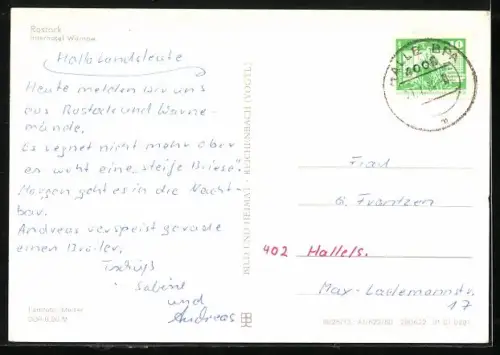 Rostock
Interhotel Warnow
Hallo Landsleute
Heute melden wir uns
aus Rostock und Warne-
münde.
Es regnet nicht mehr aber
es weht eine "steife Briese".
Morgen geht es in die Nacht-
bar.
Andreas verspeist gerade
einen Broiler.
Tschüß
Sabine
und
Andreas
BILD UND HEIMAT · REICHENBACH (VOGTL)
HALLE BPA
4000
10
Frau
G. Frantzen
402 Halle/S.
Max-Lademannstr.
17